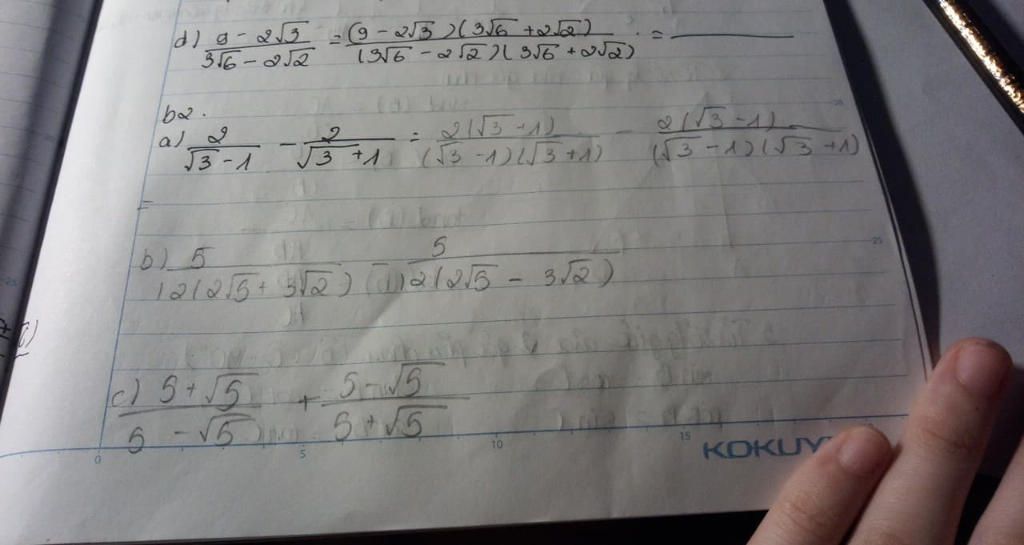 d) \frac{9 - 2√3}{3√6 - 2√2} = \frac{(9 - 2√3)(3√6 + 2√2)}{(3√6 - 2√2)(3√6 + 2√2)} =
b2.
a) \frac{2}{√3 - 1} - \frac{2}{√3 + 1} = \frac{2(√3 + 1)}{(√3 - 1)(√3 + 1)} - \frac{2(√3 - 1)}{(√3 - 1)(√3 + 1)}
=
b) \frac{5}{12(2√5 + 3√2)} - \frac{5}{12(2√5 - 3√2)}
c) \frac{5 + √5}{5 - √5} + \frac{5 - √5}{5 + √5}
0 5 10 15
KOKUY